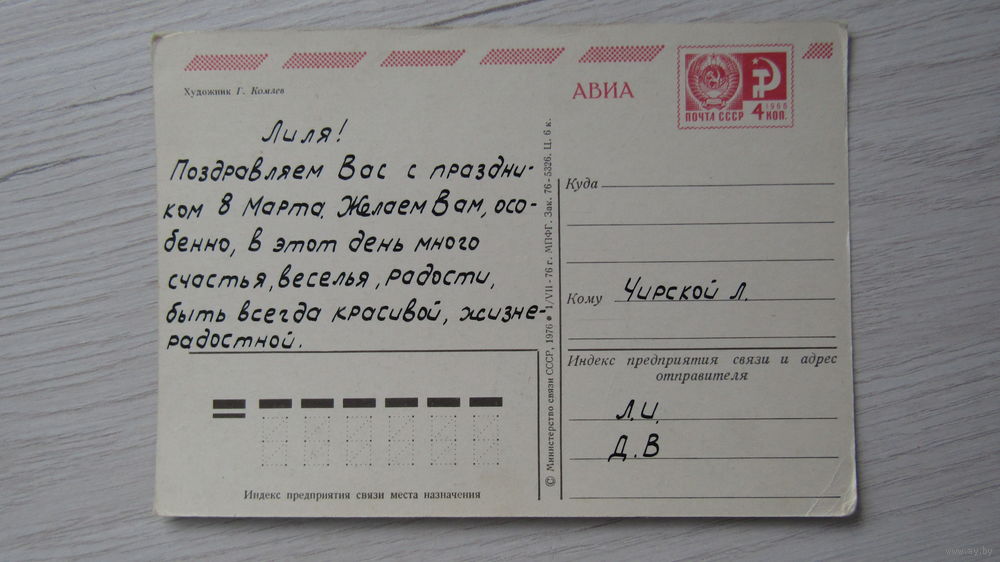 АВИА
ПОЧТА СССР
1966
4 КОП.
Художник Г. Комлев
Лиля!
Поздравляем Вас с праздни-
ком 8 Марта. Желаем Вам, осо-
бенно, в этот день много
счастья, веселья, радости,
быть всегда красивой, жизне-
радостной.
Индекс предприятия связи места назначения
© Министерство связи СССР, 1976 • 1/VII-76 г. МПФГ. Зак. 76-5326. Ц. 6 к.
Куда
Кому Чирской Л.
Индекс предприятия связи и адрес
отправителя
Л.И.
Д.В
www.ay.by